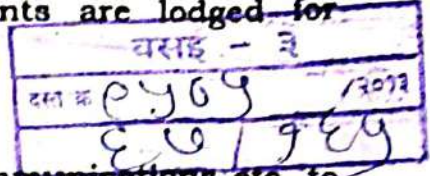 nts are lodged for
वसइ - ३
दस्त क्र ९५७५ /२०१२
६७ / १६५